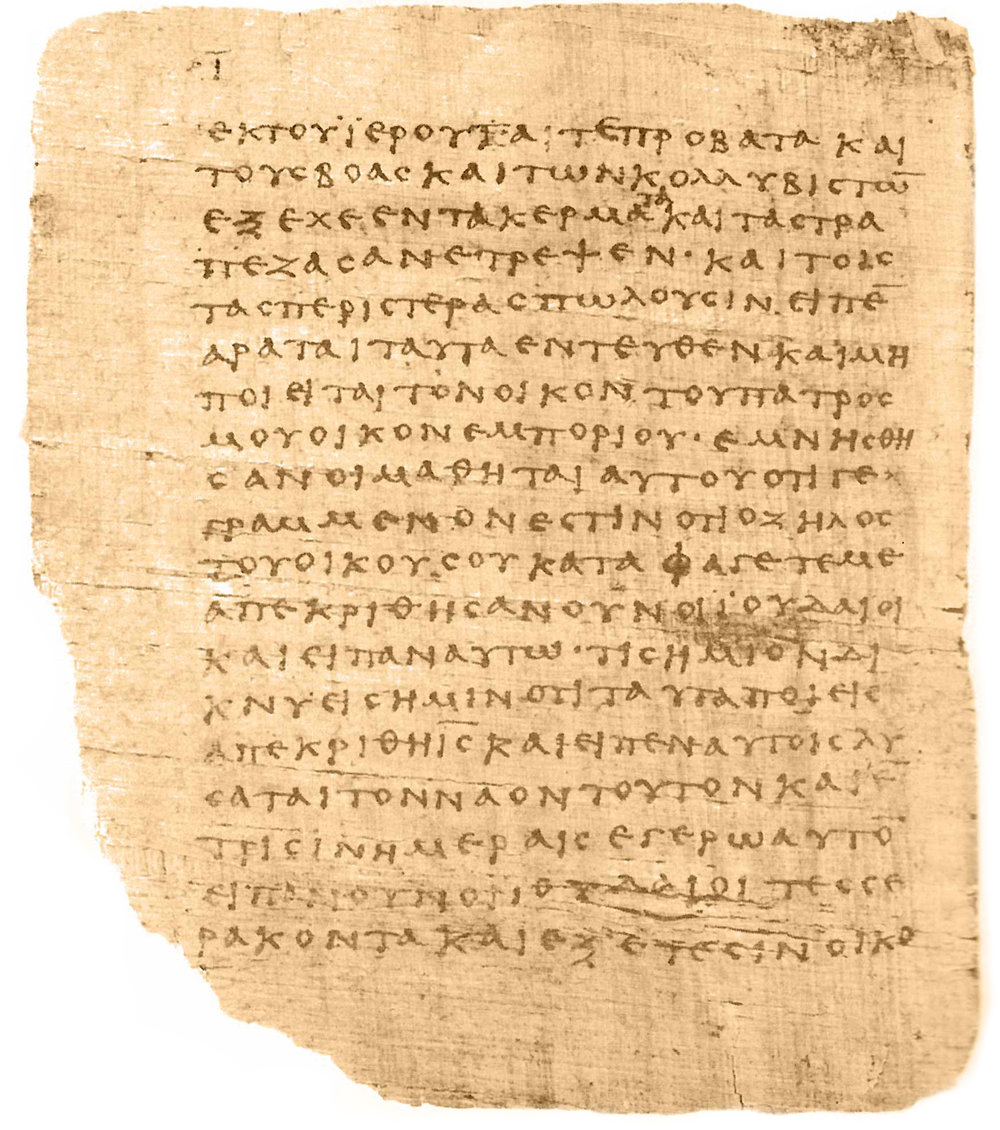 ῑ
εκτουϊερουταιτεπροβατακαι
τουςβοαςκαιτωνκολλυβιστω̅
εξεχεεντακερματακαιταςτρα
πεζαςανετρεψεν·καιτοις
ταςπεριστεραςπωλουσινειπε̅
αραταιταυταεντευθενκαιμη
ποιειταιτονοικοντουπατρος
μουοικονεμποριου·εμνησθη
σανοιμαθηταιαυτουοτιγε
γραμμενονεστινοτιοζηλος
τουοικουσουκαταφαγετεμε
απεκριθησανουνοιϊουδαιοι
καιειπαναυτω·τισημιονδι
κνυειςημινοτιταυταποιεις
απεκριθηι̅ς̅καιειπεναυτοιςλυ
σαταιτονναοντουτονκαιε̅
τρισινημεραιςεγερωαυτο̅
ειπανουνοιϊουδαιοιτεσσε
ρακοντακαιεξετεσινοικο